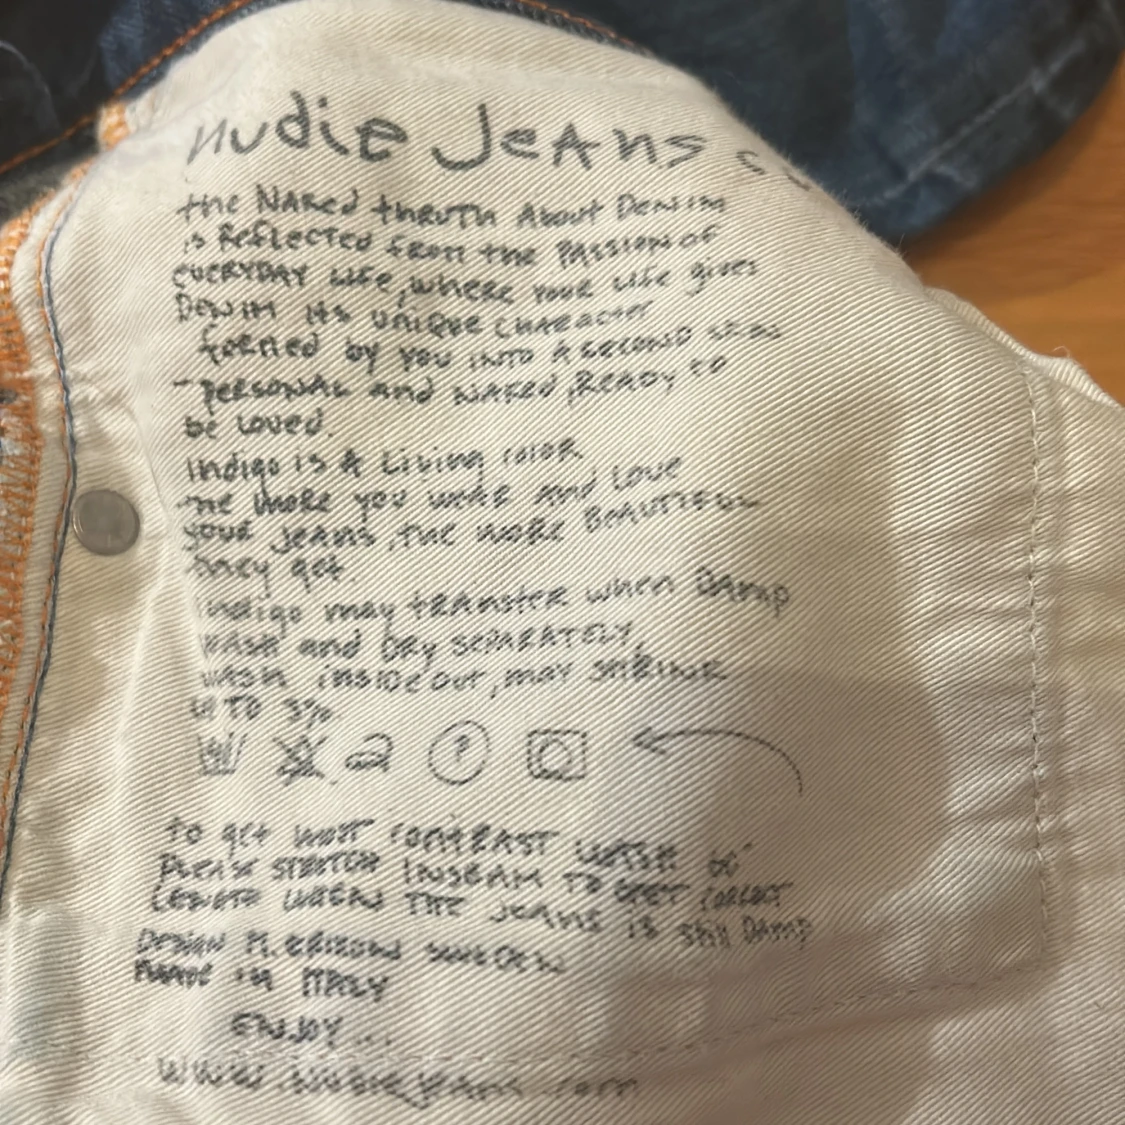 nudie Jeans c
the NAked thRUTH About DENIM
is Reflected from the PASSION OF
EVERYDAY LIfe, where YOUR LIfe gives
DENIM its UNIQUE CHARACTER
formed by YOU INTO A SECOND SKIN
- PERSONAL and NAked, READY to
be Loved.
Indigo is A Living color
THE MORE you WEAR and LOVE
YOUR JEANS, THE MORE BEAUTIFUL
they get.
Indigo may transfer when DAMP
WASH and DRY SEPARATELY,
WASH insideout, may SHRINK
TO 3%
?
to get most CONTRAST WASH 60°
PLEASE STRETCH INSEAM TO GET CORRECT
LENGTH WHEN THE JEANS is still DAMP
DESIGN M. ERIXSON SWEDEN
MADE in ITALY
ENJOY...
www.NUDIEJEANS.com